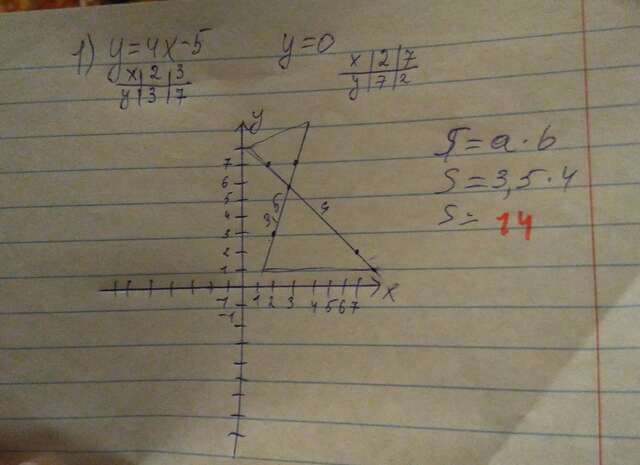 1) y=4x-5 y=0
x 2 3
y 3 7
x 2 7
y 7 2
S=a·b
S=3,5·4
S= 14
y
7
6
5
4
3
2
1
-1
-1
3,5
4
1 2 3 4 5 6 7 x